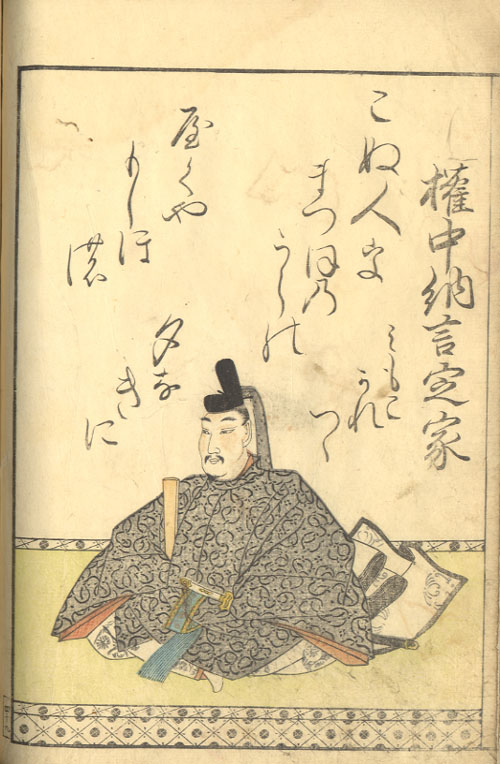 權中納言定家
こぬ人を
まつほの
うらの
夕な
きに
屋くや
もしほ
濃
みもこ
かれ
つゝ